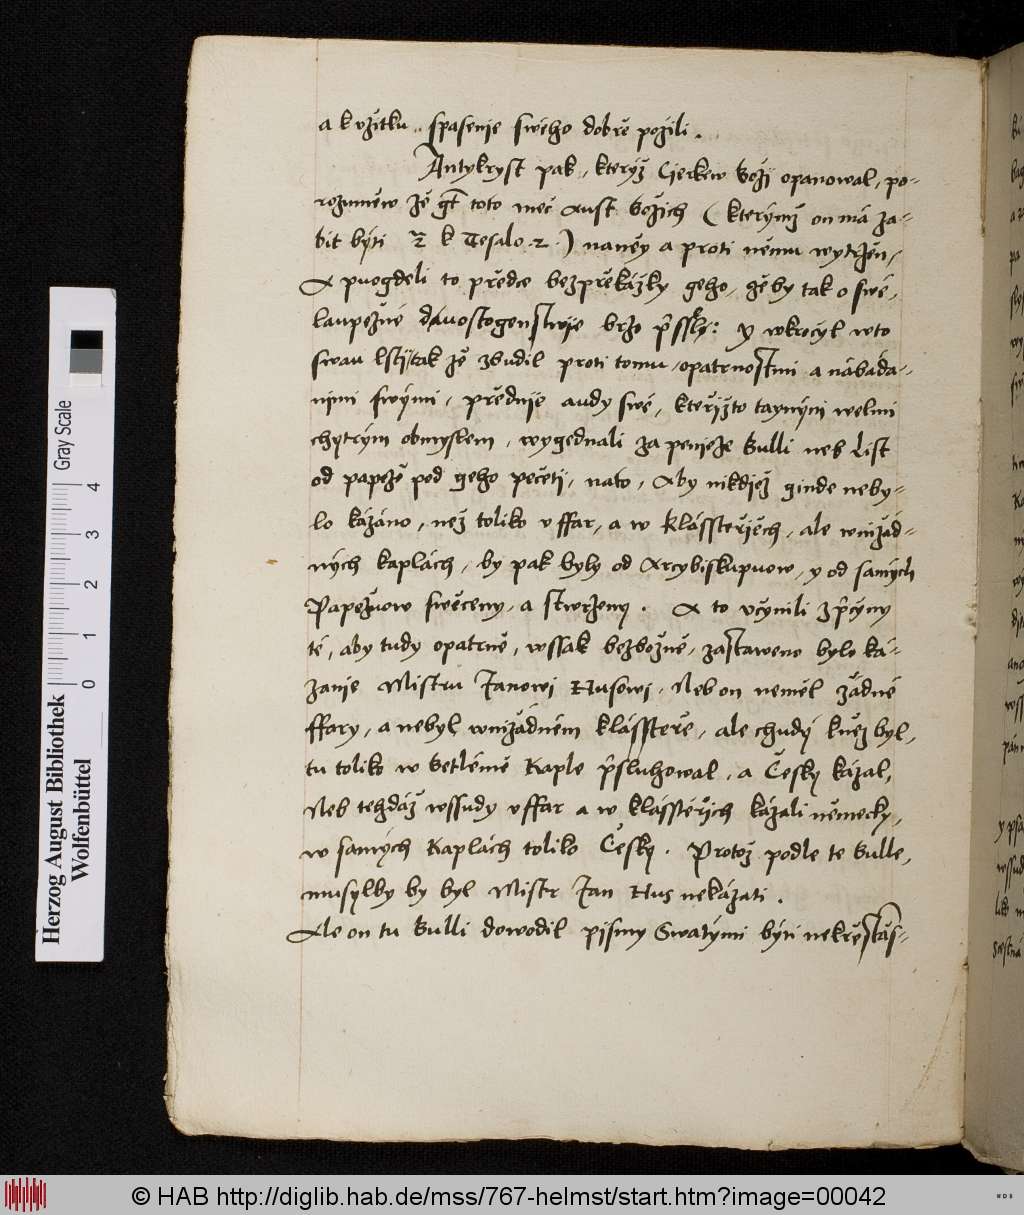 a k vžitku spasenie swého dobrě požili.
Antykryst pak, kterýž Cierkew Boži opanowal, po-
rozuměw žě gt toto meč Aust Božich (kterýmž on má za-
bit býti 2 k Tesalo. 2.) naněy a proti němu wytržen,
A puogdeli to předce bezpřekážky geho, žěby tak o swé,
laupežné duostogenstwie brzo přssly: y wkročyl wto
swau lstij tak žě zbudil proti tomu, opatrnostmi a nábádá-
nimi swými, přednie audy swé, kteřižto taynými welmi
chytrým obmyslem, wygednali za penieze Bulli neb List
od papežě pod geho pečetij, nato, Aby nikdiež ginde neby-
lo kázáno, než toliko v ffar, a w klássteřiech, ale wnižád-
ných kaplách, by pak byly od Arcybiskupuow, y od samých
Papežuow swěceny, a stwrzeny. A to včynili z přičyny
té, aby tudy opatrně, wssak bezbožně, zastaweno bylo ká-
zanie Mistru Janowi Husowi, Neb on neměl žádné
ffary, a nebyl wnižádném klássteře, ale chudý kněz byl,
tu toliko w Betlémě Kaple přsluhowal, a Česky kázal,
Neb tehdáž wssudy v ffar a w klássteřich kázali německy,
w samých Kaplách toliko Česky. Protož podle te Bulle,
musylby by byl Mistr Jan Hus nekázati.
Ale on tu Bulli dowodil pismy Swatými býti nekřestás-
Herzog August Bibliothek
Wolfenbüttel
Gray Scale
0 1 2 3 4
© HAB http://diglib.hab.de/mss/767-helmst/start.htm?image=00042